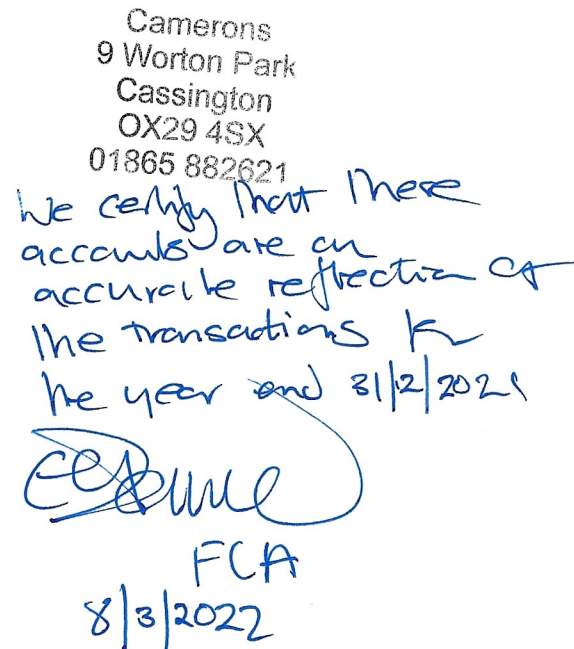 Camerons
9 Worton Park
Cassington
OX29 4SX
01865 882621
We certify that these
accounts are an
accurate reflection of
the transactions for
the year end 31/12/2021
FCA
8/3/2022